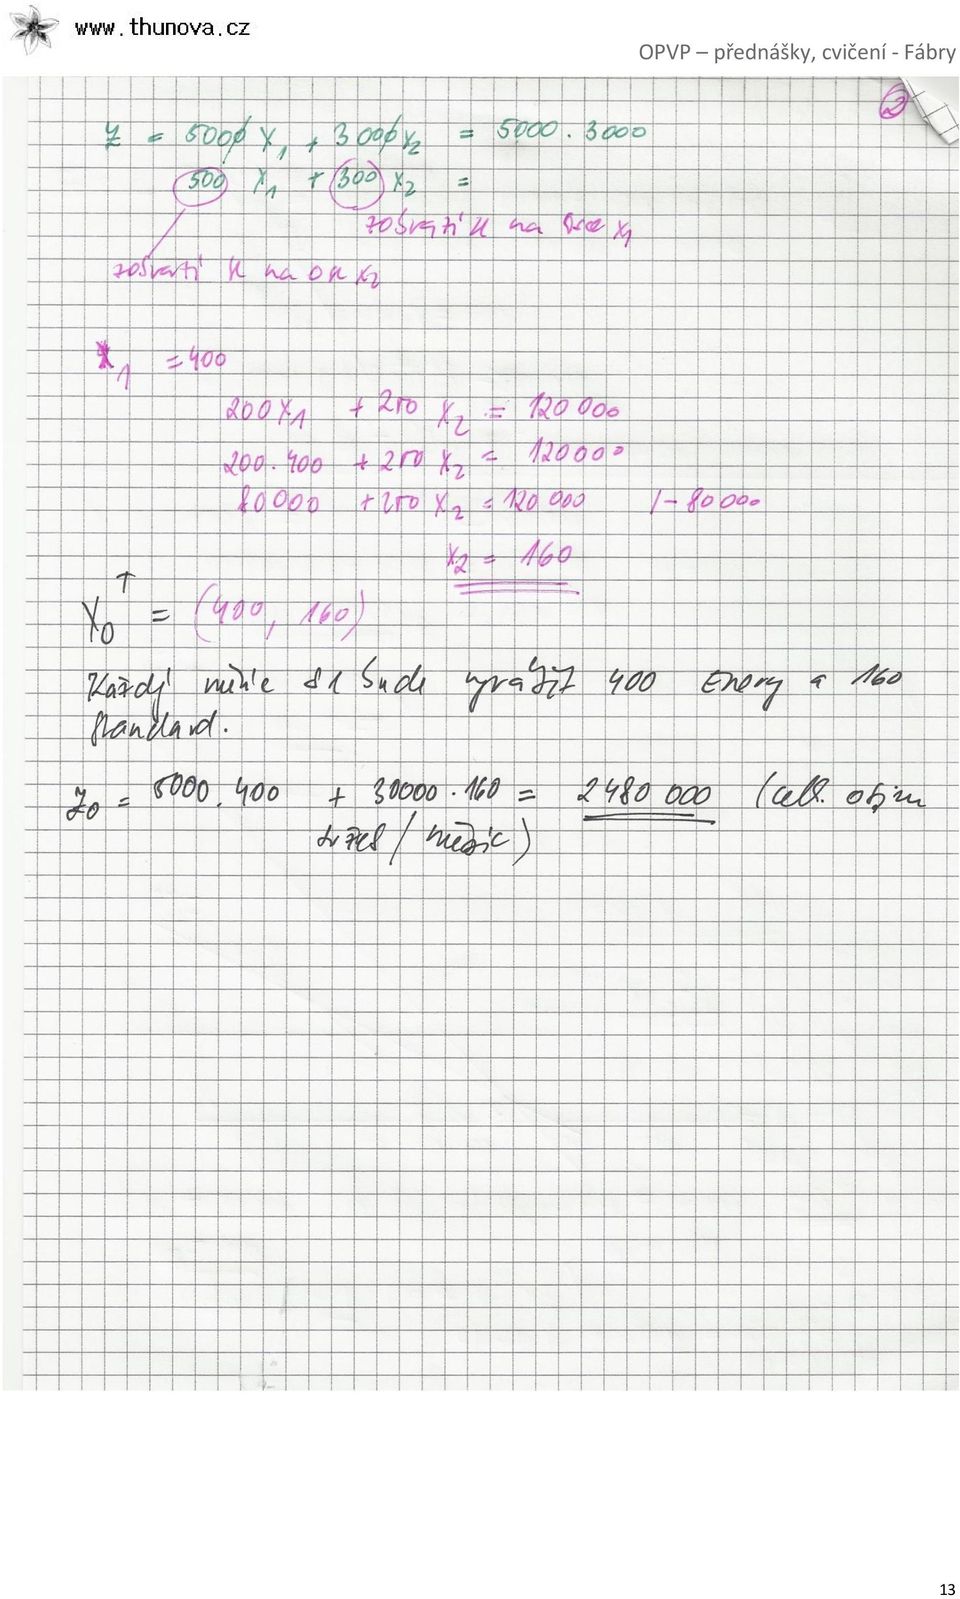 www.thunova.cz
OPVP – přednášky, cvičení - Fábry
2
z = 5000 x1 + 3000 x2 = 5000 . 3000
500 x1 + 300 x2 =
na x1
na x2
x1 = 400
200x1 + 250 x2 = 120 000
200.400 + 250 x2 = 120000
80000 + 250 x2 = 120 000 /- 80 000
x2 = 160
x0 T = (400, 160)
Každý bude vyrábět 400 Energy a 160
Standard.
z0 = 5000.400 + 30000.160 = 2 480 000 (celk. objem
tržeb / měsíc)
13